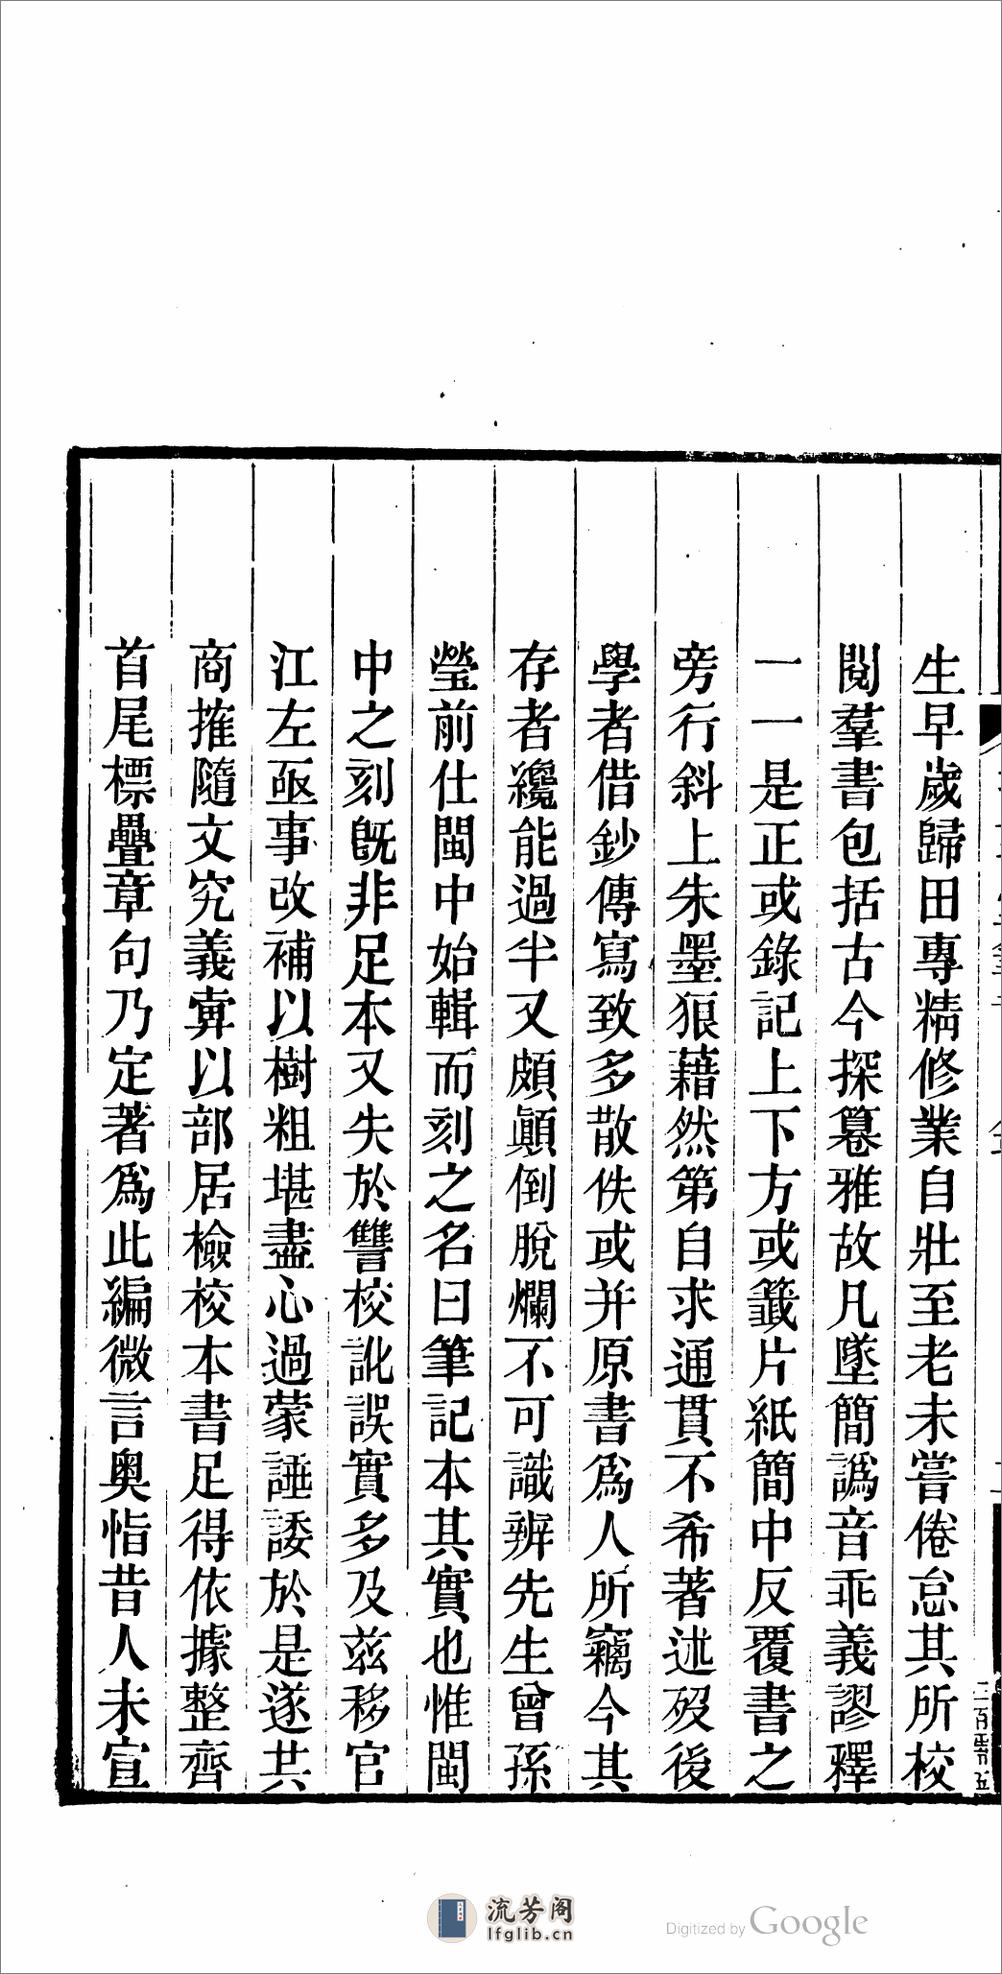 生早歲歸田專精修業自壯至老未嘗倦怠其所校
閱羣書包括古今探纂雅故凡墜簡譌音乖義謬釋
一一是正或錄記上下方或籤片紙簡中反覆書之
旁行斜上朱墨狼藉然第自求通貫不希著述歿後
學者借鈔傳寫致多散佚或并原書爲人所竊今其
存者纔能過半又頗顚倒脫爛不可識辨先生曾孫
瑩前仕閩中始輯而刻之名曰筆記本其實也惟閩
中之刻旣非足本又失於讐校訛誤實多及茲移官
江左亟事改補以樹粗堪盡心過蒙諈諉於是遂共
商搉隨文究義寔以部居檢校本書足得依據整齊
首尾標疊章句乃定著爲此編微言奧恉昔人未宣
流芳阁
lfglib.cn
Digitized by Google